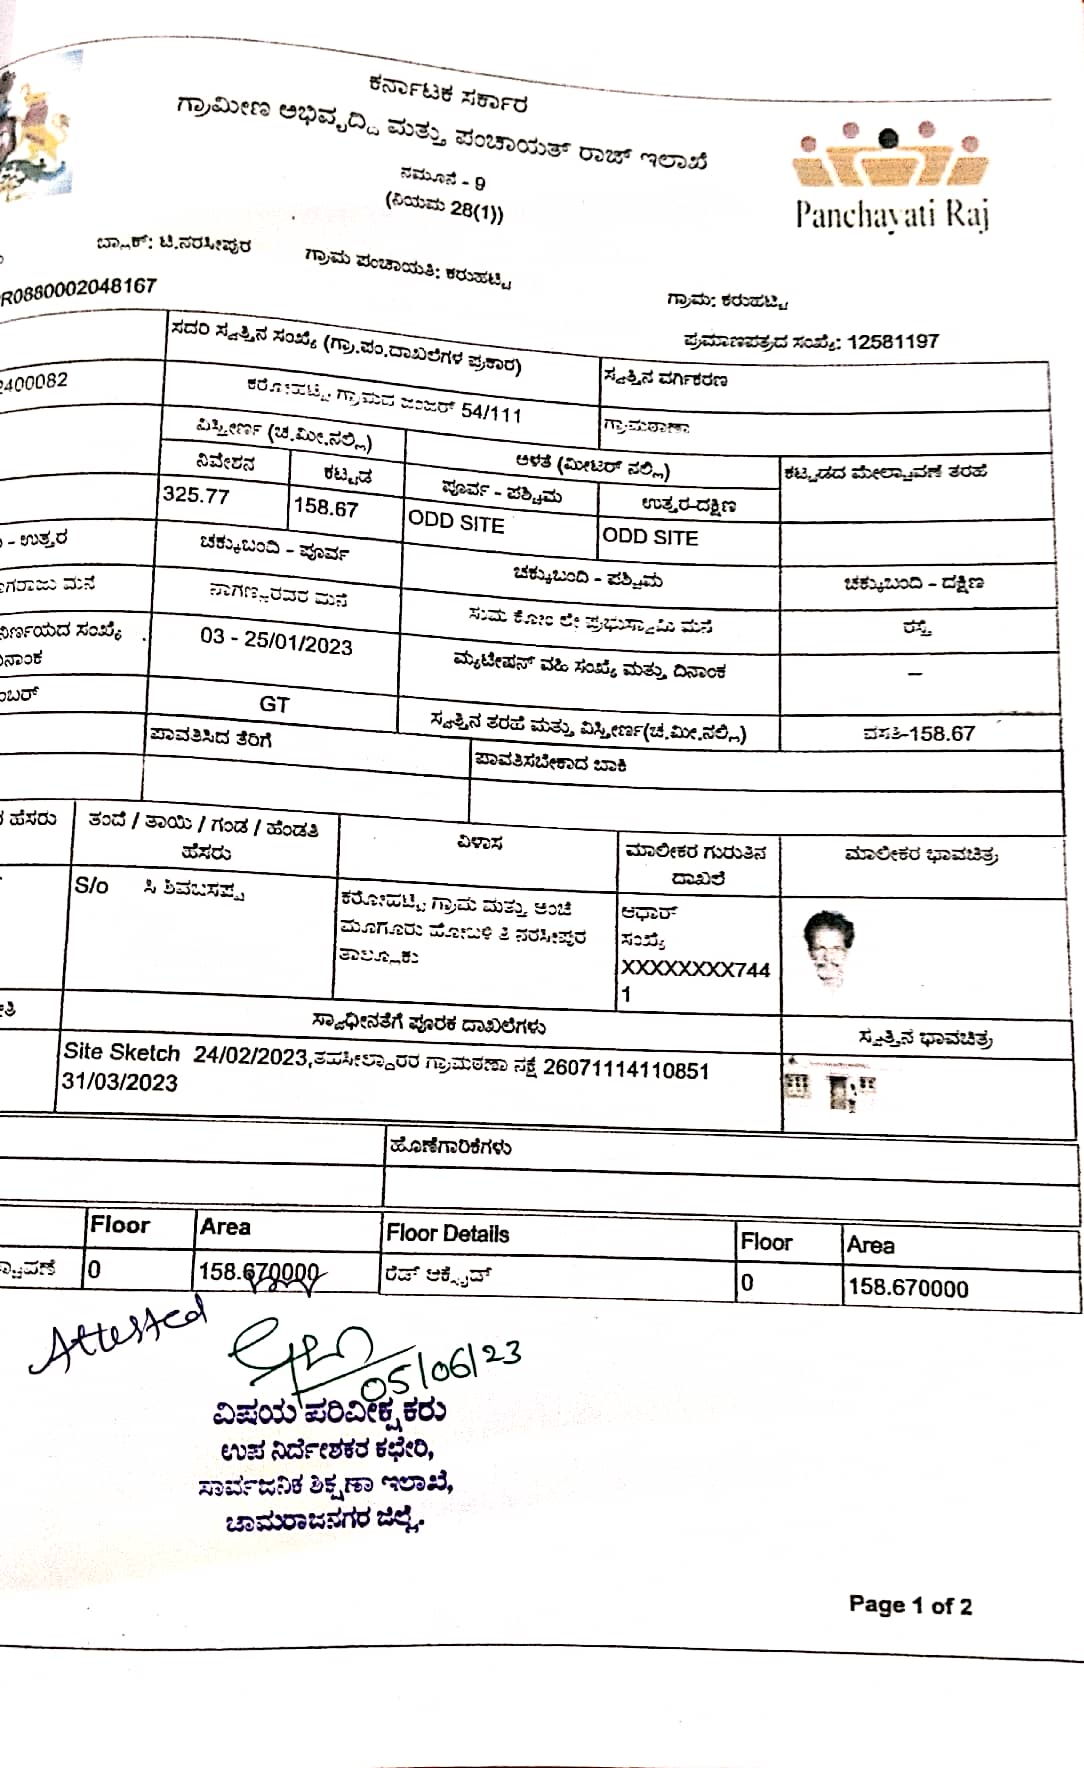 ಕರ್ನಾಟಕ ಸರ್ಕಾರ
ಗ್ರಾಮೀಣ ಅಭಿವೃದ್ದಿ ಮತ್ತು ಪಂಚಾಯತ್ ರಾಜ್ ಇಲಾಖೆ
ನಮೂನೆ - 9
(ನಿಯಮ 28(1))
Panchayati Raj
ಬ್ಲಾಕ್: ಟಿ.ನರಸೀಪುರ ಗ್ರಾಮ ಪಂಚಾಯತಿ: ಕರುಹಟ್ಟಿ ಗ್ರಾಮ: ಕರುಹಟ್ಟಿ
R0880002048167 ಪ್ರಮಾಣಪತ್ರದ ಸಂಖ್ಯೆ: 12581197
ಸದರಿ ಸ್ವತ್ತಿನ ಸಂಖ್ಯೆ (ಗ್ರಾ.ಪಂ.ದಾಖಲೆಗಳ ಪ್ರಕಾರ) ಸ್ವತ್ತಿನ ವರ್ಗಿಕರಣ
2400082 ಕರೋಹಟ್ಟಿ ಗ್ರಾಮದ ಜಂಜರ್ 54/111 ಗ್ರಾಮಠಾಣಾ
ವಿಸ್ತೀರ್ಣ (ಚ.ಮೀ.ನಲ್ಲಿ) ಅಳತೆ (ಮೀಟರ್ ನಲ್ಲಿ) ಕಟ್ಟಡದ ಮೇಲ್ಚಾವಣೆ ತರಹೆ
ನಿವೇಶನ ಕಟ್ಟಡ ಪೂರ್ವ - ಪಶ್ಚಿಮ ಉತ್ತರ-ದಕ್ಷಿಣ
325.77 158.67 ODD SITE ODD SITE
- ಉತ್ತರ ಚಕ್ಕುಬಂದಿ - ಪೂರ್ವ ಚಕ್ಕುಬಂದಿ - ಪಶ್ಚಿಮ ಚಕ್ಕುಬಂದಿ - ದಕ್ಷಿಣ
ಗರಾಜು ಮನೆ ನಾಗಣ್ಣರವರ ಮನೆ ಸುಮ ಕೋಂ ಲೇ ಪ್ರಭುಸ್ವಾಮಿ ಮನೆ ರಸ್ತೆ
ನಿರ್ಣಯದ ಸಂಖ್ಯೆ 03 - 25/01/2023 ಮ್ಯುಟೇಷನ್ ವಹಿ ಸಂಖ್ಯೆ ಮತ್ತು ದಿನಾಂಕ –
ನಾಂಕ
ಂಬರ್ GT ಸ್ವತ್ತಿನ ತರಹೆ ಮತ್ತು ವಿಸ್ತೀರ್ಣ(ಚ.ಮೀ.ನಲ್ಲಿ) ವಸತಿ-158.67
ಪಾವತಿಸಿದ ತೆರಿಗೆ ಪಾವತಿಸಬೇಕಾದ ಬಾಕಿ
ಹೆಸರು ತಂದೆ / ತಾಯಿ / ಗಂಡ / ಹೆಂಡತಿ ವಿಳಾಸ ಮಾಲೀಕರ ಗುರುತಿನ ಮಾಲೀಕರ ಭಾವಚಿತ್ರ
ಹೆಸರು ದಾಖಲೆ
S/o ಸಿ ಶಿವಬಸಪ್ಪ ಕರೋಹಟ್ಟಿ ಗ್ರಾಮ ಮತ್ತು ಅಂಚೆ ಆಧಾರ್
ಮೂಗೂರು ಹೋಬಳಿ ತಿ ನರಸೀಪುರ ಸಂಖ್ಯೆ
ತಾಲ್ಲೂಕು XXXXXXXX744
1
ಸ್ವಾಧೀನತೆಗೆ ಪೂರಕ ದಾಖಲೆಗಳು ಸ್ವತ್ತಿನ ಭಾವಚಿತ್ರ
Site Sketch 24/02/2023,ತಹಸೀಲ್ದಾರರ ಗ್ರಾಮಠಣಾ ನಕ್ಷೆ 26071114110851
31/03/2023
ಹೊಣೆಗಾರಿಕೆಗಳು
Floor Area Floor Details Floor Area
ಚಾವಣೆ 0 158.670000 ರೆಡ್ ಆಕ್ಸೈಡ್ 0 158.670000
Attested
05/06/23
ವಿಷಯ ಪರಿವೀಕ್ಷಕರು
ಉಪ ನಿರ್ದೇಶಕರ ಕಛೇರಿ,
ಸಾರ್ವಜನಿಕ ಶಿಕ್ಷಣಾ ಇಲಾಖೆ,
ಚಾಮರಾಜನಗರ ಜಿಲ್ಲೆ.
Page 1 of 2